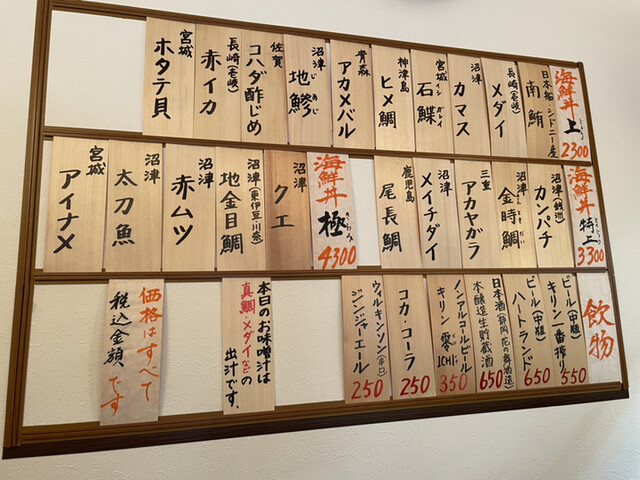 海鮮丼 上 2300
日本船 シドニー産 南鮪
長崎(壱岐) メダイ
沼津 カマス
宮城 石鰈 イシガレイ
神津島 ヒメ鯛
青森 アカメバル
沼津 地鯵 じあじ
佐賀 コハダ酢じめ
長崎(壱岐) 赤イカ
宮城 ホタテ貝
海鮮丼 特上 3300
沼津 カンパチ
沼津 金時鯛
三重 アカヤガラ
沼津 メイチダイ
鹿児島 尾長鯛
海鮮丼 極 きわみ 4300
沼津 クエ
沼津(東伊豆・川奈) 地金目鯛
沼津 赤ムツ
沼津 太刀魚
宮城 アイナメ
飲物
ビール(中瓶) キリン一番搾り 550
ビール(中瓶) ハートランド 650
日本酒(静岡・花の舞酒造) 本醸造生貯蔵酒 650
ノンアルコールビール キリン 零ICHI 350
コカ・コーラ 250
ウィルキンソン(辛口) ジンジャエール 250
本日のお味噌汁は
真鯛・メダイなどの
出汁です、
価格はすべて
税込金額です